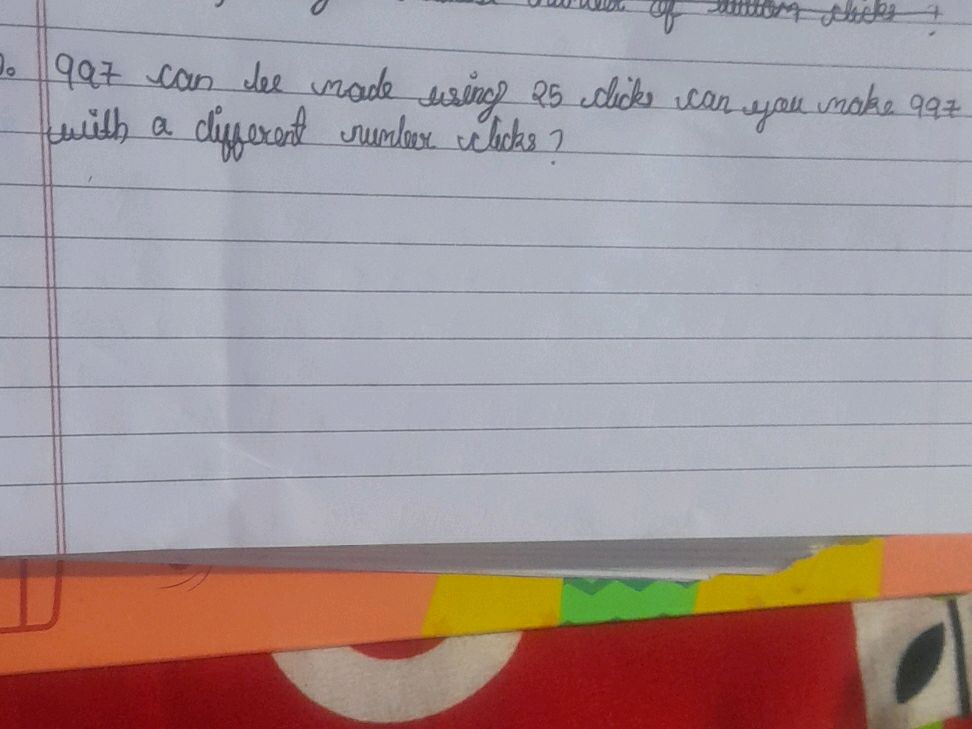 of button clicks ?
997 can be made using 25 clicks can you make 997
with a different number clicks?